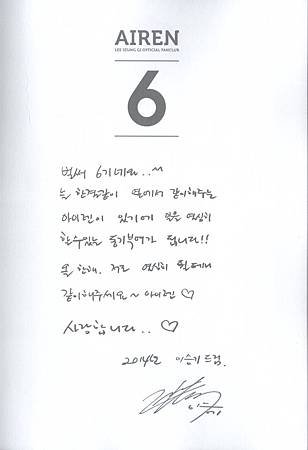 AIREN
LEE SEUNG GI OFFICIAL FANCLUB
6
벌써 6기네요..^^
늘 한결같이 옆에서 같이해주는
아이렌이 있기에 일을 열심히
할수있는 동기부여가 됩니다!!
올 한해. 저도 열심히 뛸테니
같이해주세요~ 아이렌 ♡
사랑합니다.. ♡
2014년 이승기 드림.